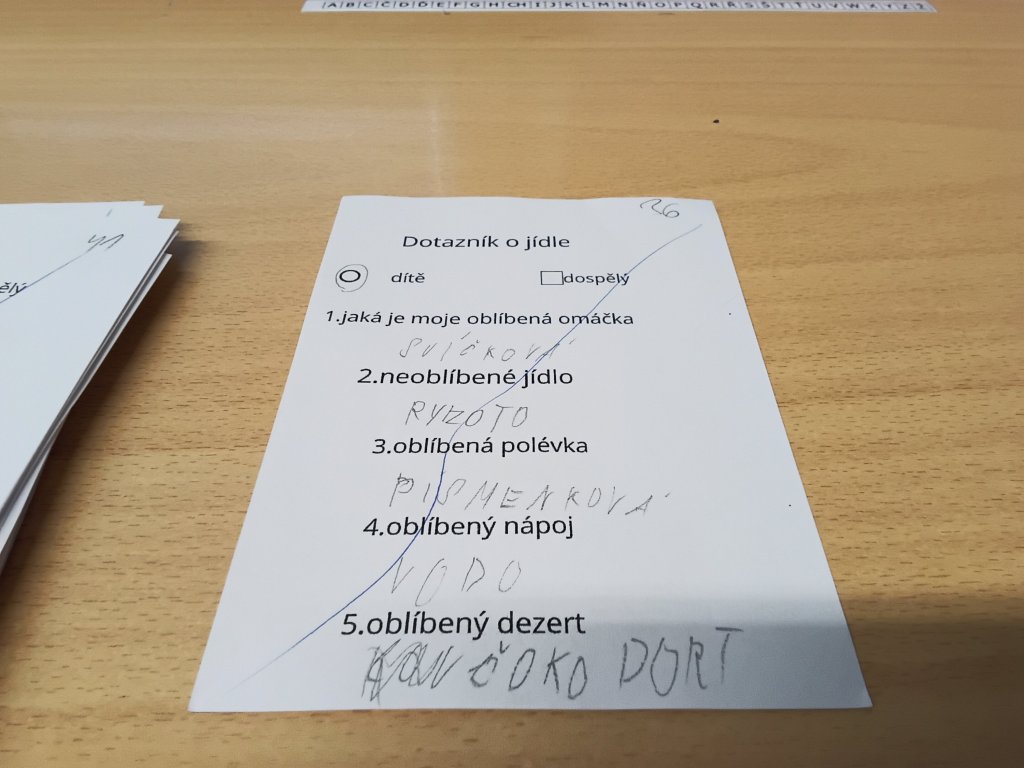 A B C Č D Ď E F G H CH I J K L M N Ň O P Q R Ř S Š T Ť U V W X Y Z Ž
26
Dotazník o jídle
dítě dospělý
1.jaká je moje oblíbená omáčka
SVÍČKOVÁ
2.neoblíbené jídlo
RYZOTO
3.oblíbená polévka
PISMENKOVÁ
4.oblíbený nápoj
VODO
5.oblíbený dezert
ČOKO DORT
41
ělý